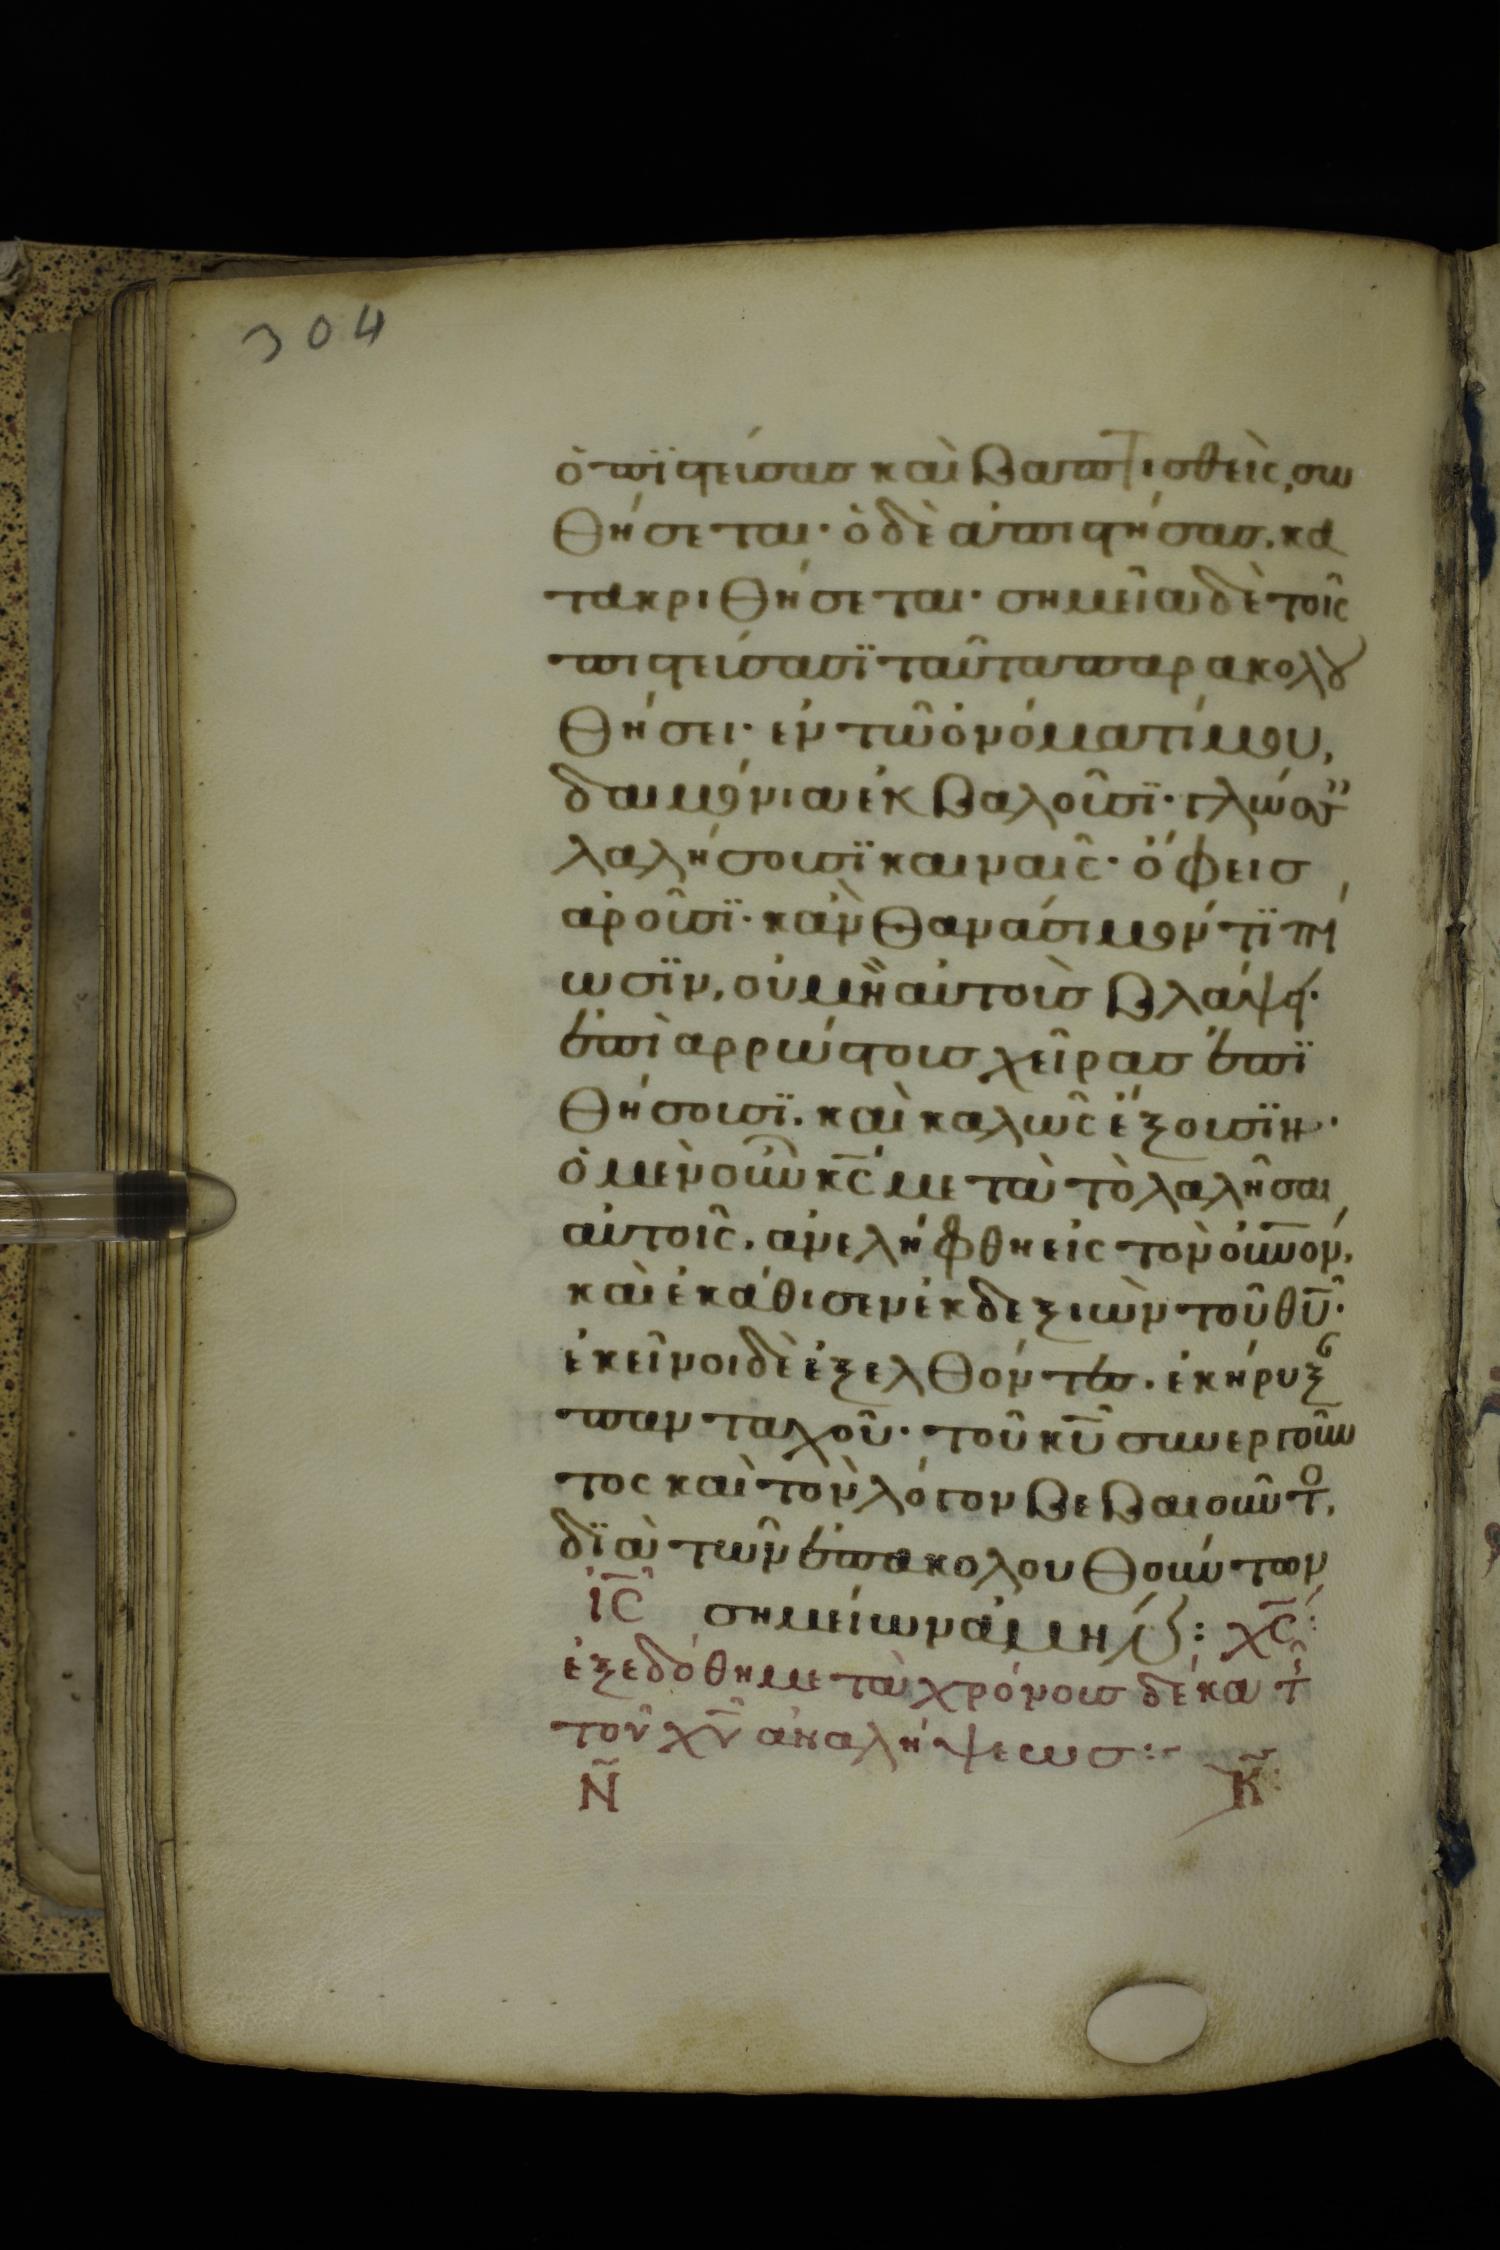 304
ὁ πϊστεύσας καὶ βαπτισθεὶς, σω
θήσεται· ὁ δὲ ἀπιστήσας, κα
τακριθήσεται· σημεῖα δὲ τοῖς
πιστεύσασϊ ταῦτα παρακολου
θήσει· ἐν τῶ ὀνόματί μου,
δαιμόνια ἐκβαλοῦσϊ· γλώσσ
λαλήσουσϊ καιναῖς· ὄφεις
ἀροῦσϊ· κἂν θανάσιμόν τϊ πί
ωσϊν, οὐ μὴ αὐτοὺς βλάψη·
ἐπὶ ἀρρώστους χεῖρας ἐπϊ
θήσουσϊ. καὶ καλῶς ἕξουσϊν·
ὁ μὲν οὖν κς μετὰ τὸ λαλῆσαι
αὐτοῖς, ἀνελήφθη εἰς τὸν οὐνον,
καὶ ἐκάθισεν ἐκ δεξιῶν τοῦ θυ·
ἐκεῖνοι δὲ ἐξελθόντες, ἐκήρυξ
πανταχοῦ· τοῦ κυ συνεργοῦν
τος καὶ τὸν λόγον βεβαιοῦντο,
δϊὰ τῶν ἐπακολουθούντων
ις σημείων ἀμήν: χς:
ἐξεδόθη μετὰ χρόνους δέκα τ
τοῦ χυ ἀναλήψεως:~
Ν Κ: